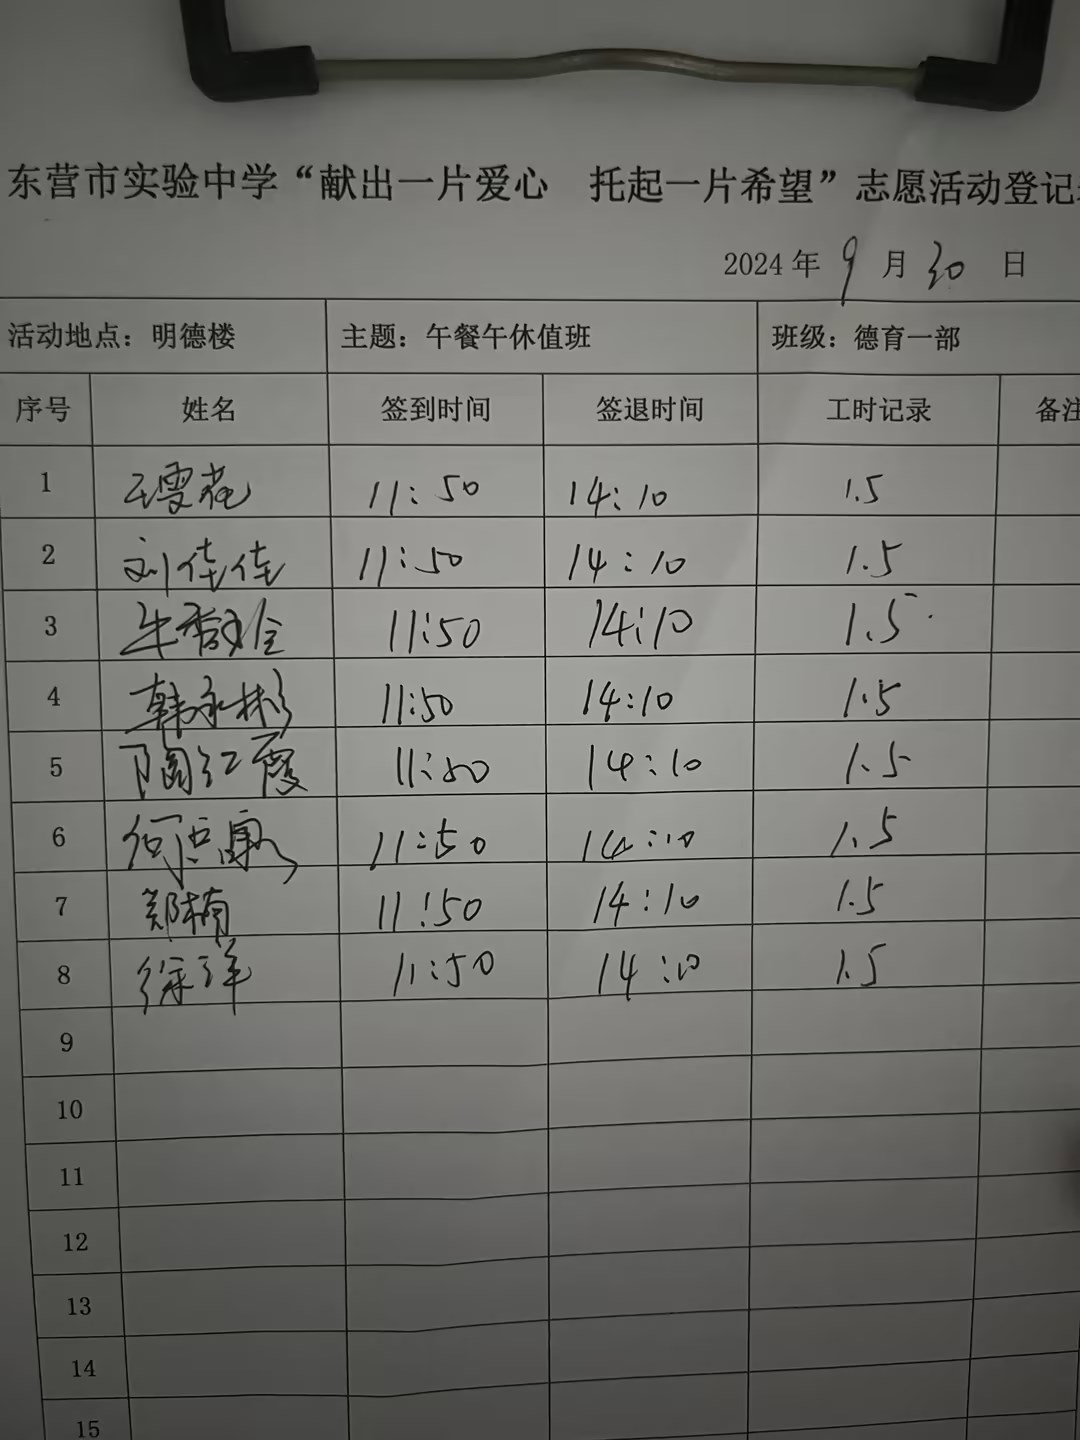 东营市实验中学“献出一片爱心 托起一片希望”志愿活动登记
2024年 9 月 30 日
活动地点：明德楼 主题：午餐午休值班 班级：德育一部
序号 姓名 签到时间 签退时间 工时记录 备注
1 王雯花 11:50 14:10 1.5
2 刘佳佳 11:50 14:10 1.5
3 牛香玲 11:50 14:10 1.5
4 韩永彬 11:50 14:10 1.5
5 陶红霞 11:50 14:10 1.5
6 何 11:50 14:10 1.5
7 郑楠 11:50 14:10 1.5
8 徐洋 11:50 14:10 1.5
9
10
11
12
13
14
15